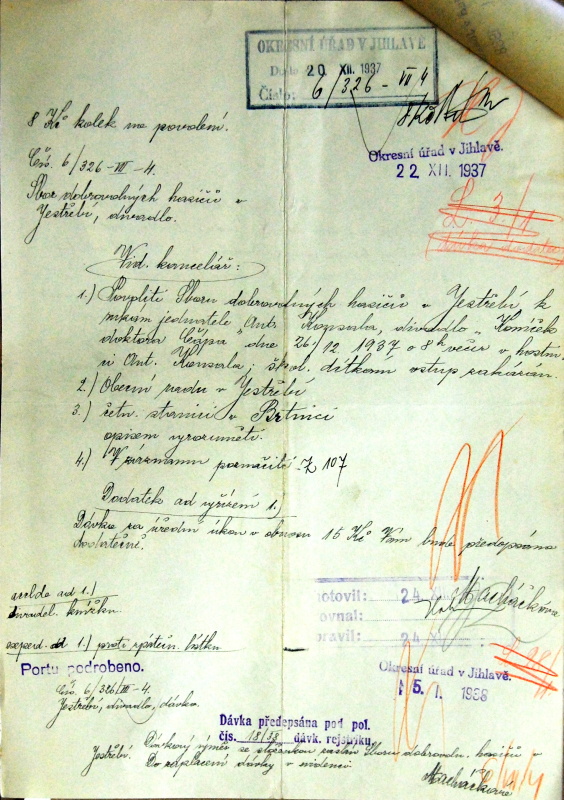 OKRESNÍ ÚŘAD V JIHLAVĚ
Došlo 20 XII. 1937
Číslo: 6/326 - VII 4
8 Kč kolek na povolení.
Okresní úřad v Jihlavě.
22 XII. 1937
Čís. 6/326-VII-4.
Sbor dobrovolných hasičů v
Jestřebí, divadlo.
Vid. kancelář:
1.) Povoliti Sboru dobrovolných hasičů v Jestřebí k
rukám jednatele Ant. Konsala, divadlo „Koníček
doktora Čápa dne 26./12. 1937 o 8h večer v hostin-
ci Ant. Konsala; škol. dítkám vstup zakázán.
2.) Obecní radu v Jestřebí
3.) četn. stanici v Brtnici
opisem vyrozuměti.
4.) V záznamu poznačiti: Z 107
Dodatek ad vyřízení 1.)
Dávka za úřední úkon v obnosu 15 Kč Vám bude předepsána
dodatečně.
ad 1.)
knížku
ad 1.) proti zpáteč. lístku
otovil: 24 XII
ovnal:
pravil: 24 XII
Macháčková
Portu podrobeno.
Čís. 6/326/VII-4.
Jestřebí, divadlo, dávka.
Okresní úřad v Jihlavě.
5. I. 1938
Dávka předepsána pod pol.
čís. 18/38 dávk. rejstříku.
Dávkový výměr se složenkou zaslán Sboru dobrovoln. hasičů v
Jestřebí.
Do zaplacení dávky v evidenci.
Macháčková